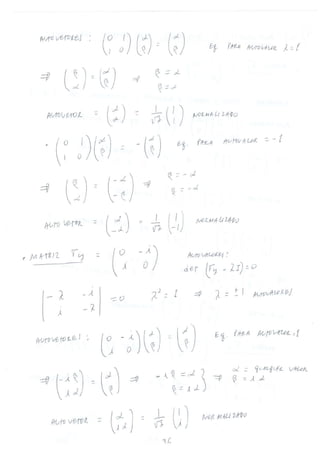 AUTOVETORES : ( 0 1 ; 1 0 ) ( α ; β ) = ( α ; β ) Eq. PARA AUTOVALOR λ=1
⇒ ( β ; α ) = ( α ; β ) ⇒ β = α ; β = α
AUTOVETOR = ( α ; α ) = 1/√2 ( 1 ; 1 ) NORMALIZADO
• ( 0 1 ; 1 0 ) ( α ; β ) = - ( α ; β ) Eq. PARA AUTOVALOR = -1
⇒ ( β ; α ) = ( -α ; -β ) ⇒ β = -α ; β = -α
AUTOVETOR = ( α ; -α ) = 1/√2 ( 1 ; -1 ) NORMALIZADO
• MATRIZ σy = ( 0 -i ; i 0 ) AUTOVALORES: det (σy - λI) = 0
| -λ -i ; i -λ | = 0 λ² = 1 ⇒ λ = ±1 AUTOVALORES
AUTOVETORES : ( 0 -i ; i 0 ) ( α ; β ) = ( α ; β ) Eq. PARA AUTOVALOR = 1
⇒ ( -iβ ; iα ) = ( α ; β ) ⇒ -iβ = α ; β = iα } ⇒ α = QUALQUER VALOR ; β = iα
AUTOVETOR = ( α ; iα ) = 1/√2 ( 1 ; i ) NORMALIZADO